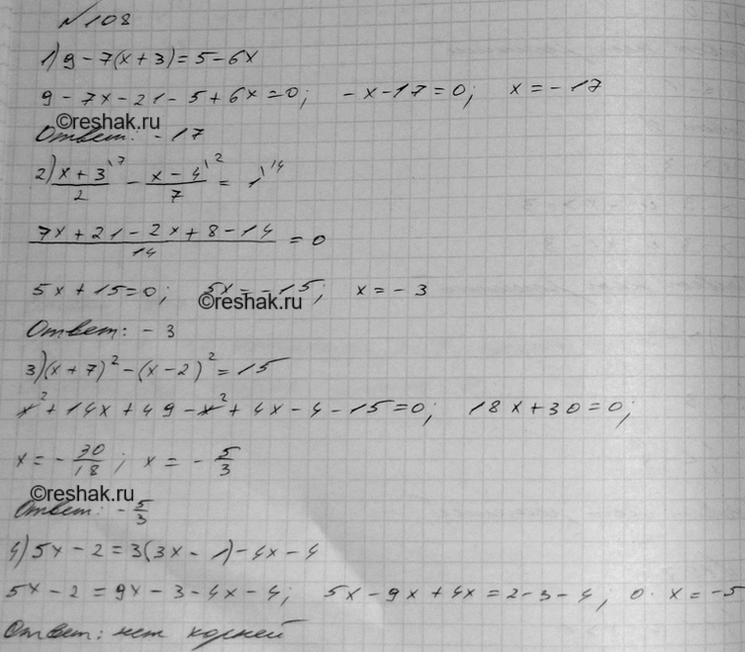 №108
1) 9 - 7(x + 3) = 5 - 6x
9 - 7x - 21 - 5 + 6x = 0; -x - 17 = 0; x = -17
©reshak.ru
Ответ: -17
2) x + 3\7 / 2 - x - 4\2 / 7 = 1\14
7x + 21 - 2x + 8 - 14 / 14 = 0
5x + 15 = 0; 5x = -15; x = -3
©reshak.ru
Ответ: -3
3) (x + 7)² - (x - 2)² = 15
x² + 14x + 49 - x² + 4x - 4 - 15 = 0; 18x + 30 = 0;
x = - 30/18; x = - 5/3
©reshak.ru
Ответ: - 5/3
4) 5x - 2 = 3(3x - 1) - 4x - 4
5x - 2 = 9x - 3 - 4x - 4; 5x - 9x + 4x = 2 - 3 - 4; 0 · x = -5
Ответ: нет корней